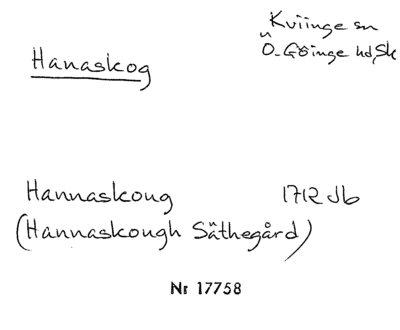 Kviinge sn
Ö. Göinge hd, Sk
Hanaskog
Hannaskoug 1712 Jb
(Hannaskough Säthegård)
Nr 17758